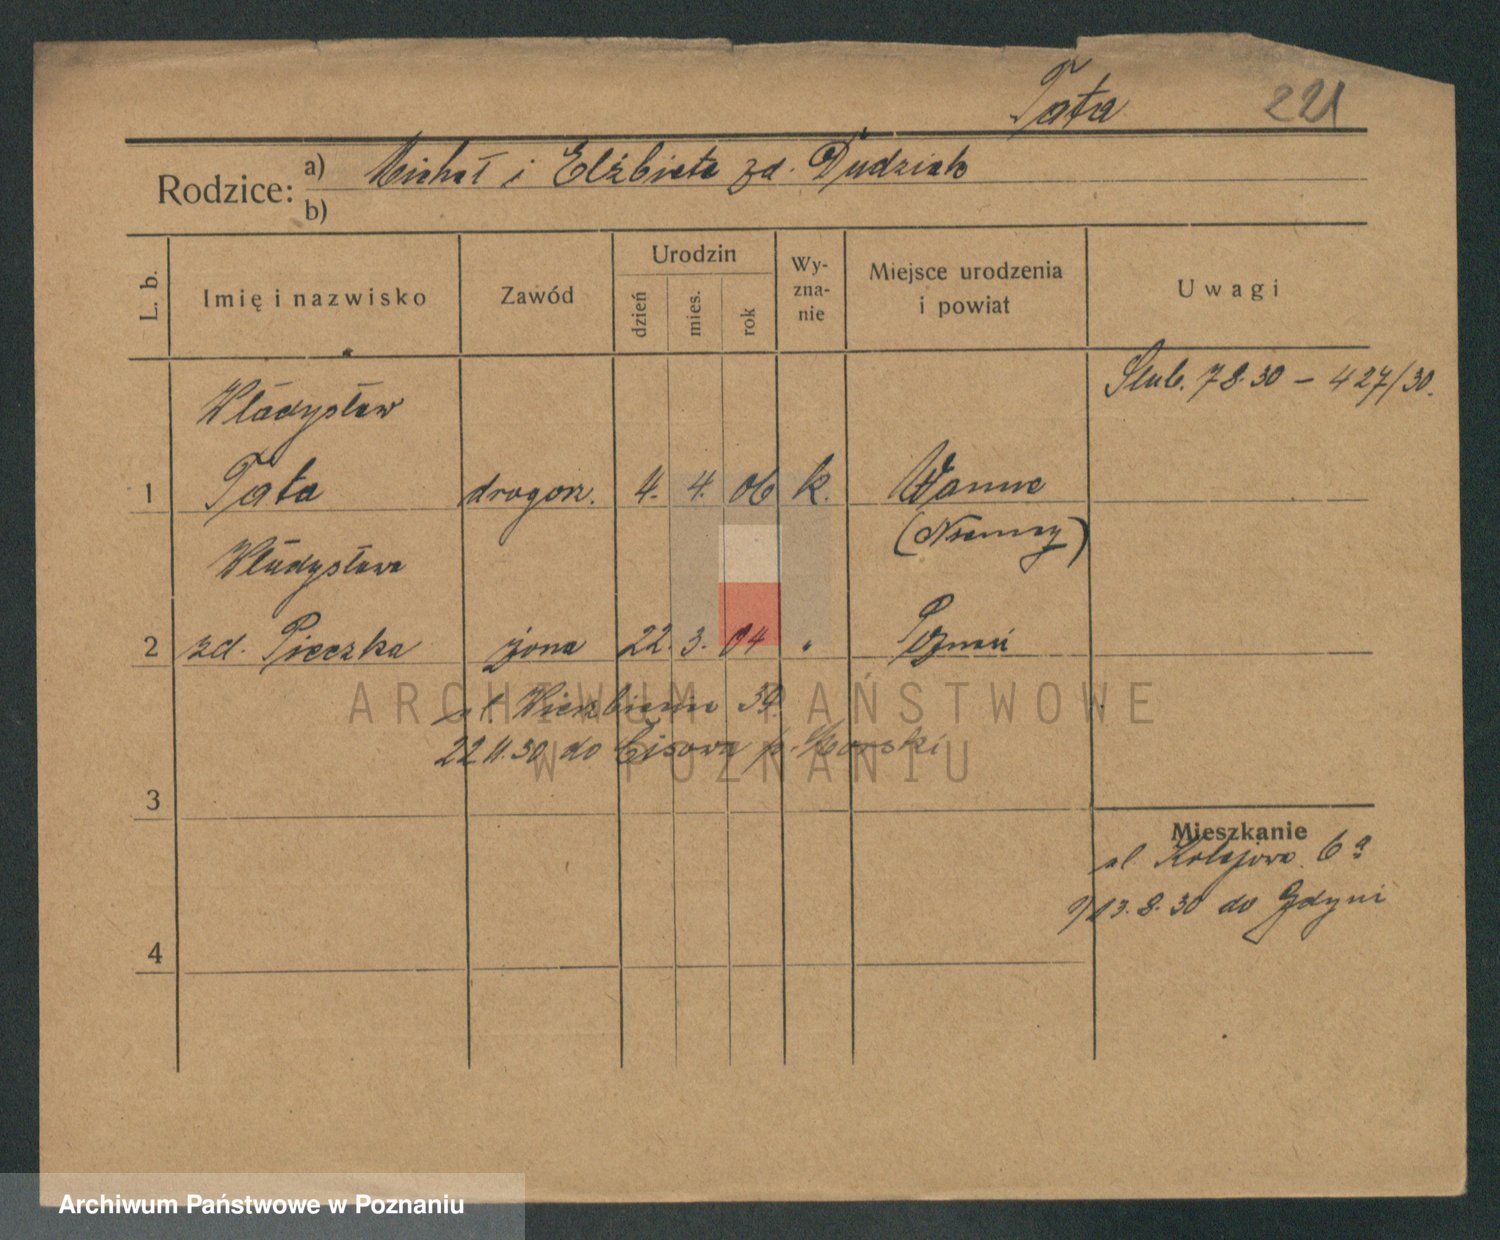 Tata 221
Rodzice: a) Michał i Elżbieta zd. Dudziak
b)
L. b. Imię i nazwisko Zawód Urodzin dzień mies. rok Wy-zna-nie Miejsce urodzenia i powiat Uwagi
Ślub. 7 8. 30 – 427/30.
Władysław
1 Tata drogerz. 4. 4. 06 k. Wanne
(Niemcy)
Władysława
2 zd. Pieczka żona 22. 3. 04 " Poznań
ul. Wierzbięcice 39.
22 11. 30 do Cisowa p. Morski
3
Mieszkanie
ul. Kolejowa 6a
13. 8. 30 do Gdyni
4
ARCHIWUM PAŃSTWOWE
W POZNANIU
Archiwum Państwowe w Poznaniu